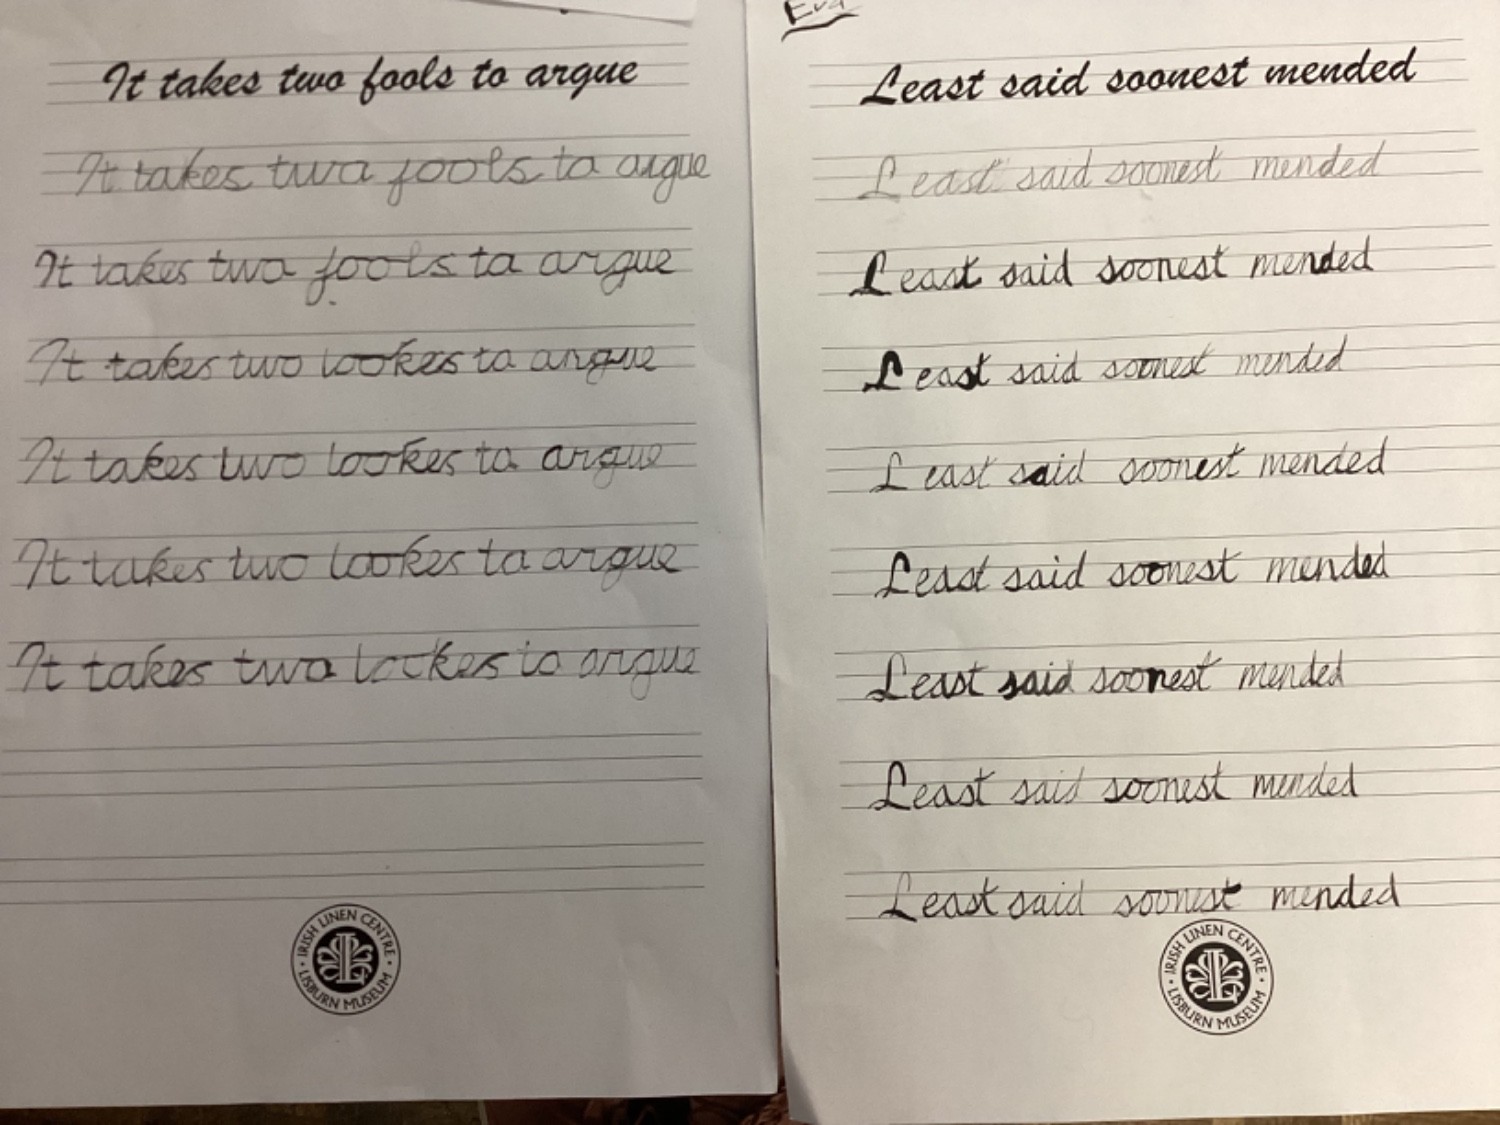 It takes two fools to argue
It takes two fools to argue
It takes two fools to argue
It takes two lookes to argue
It takes two lookes to argue
It takes two lookes to argue
It takes two lookes to argue
IRISH LINEN CENTRE
LISBURN MUSEUM
Eva
Least said soonest mended
Least said soonest mended
Least said soonest mended
Least said soonest mended
Least said soonest mended
Least said soonest mended
Least said soonest mended
Least said soonest mended
Least said soonest mended
IRISH LINEN CENTRE
LISBURN MUSEUM